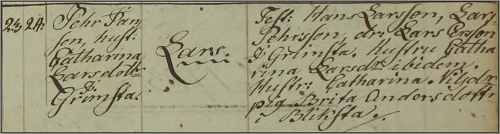 23. 24. Pehr Jan-
son, hust:
Catharina
Larsdott:
i
Grimsta.
Lars.
Test: Hans Larsson, Lars
Pehrson, dr. Lars Ersson
i Grimsta. Hustru Catha-
rina Larsdr ibidem.
Hustr: Catharina.
piga Brita Andersdott:
i Bliksta.